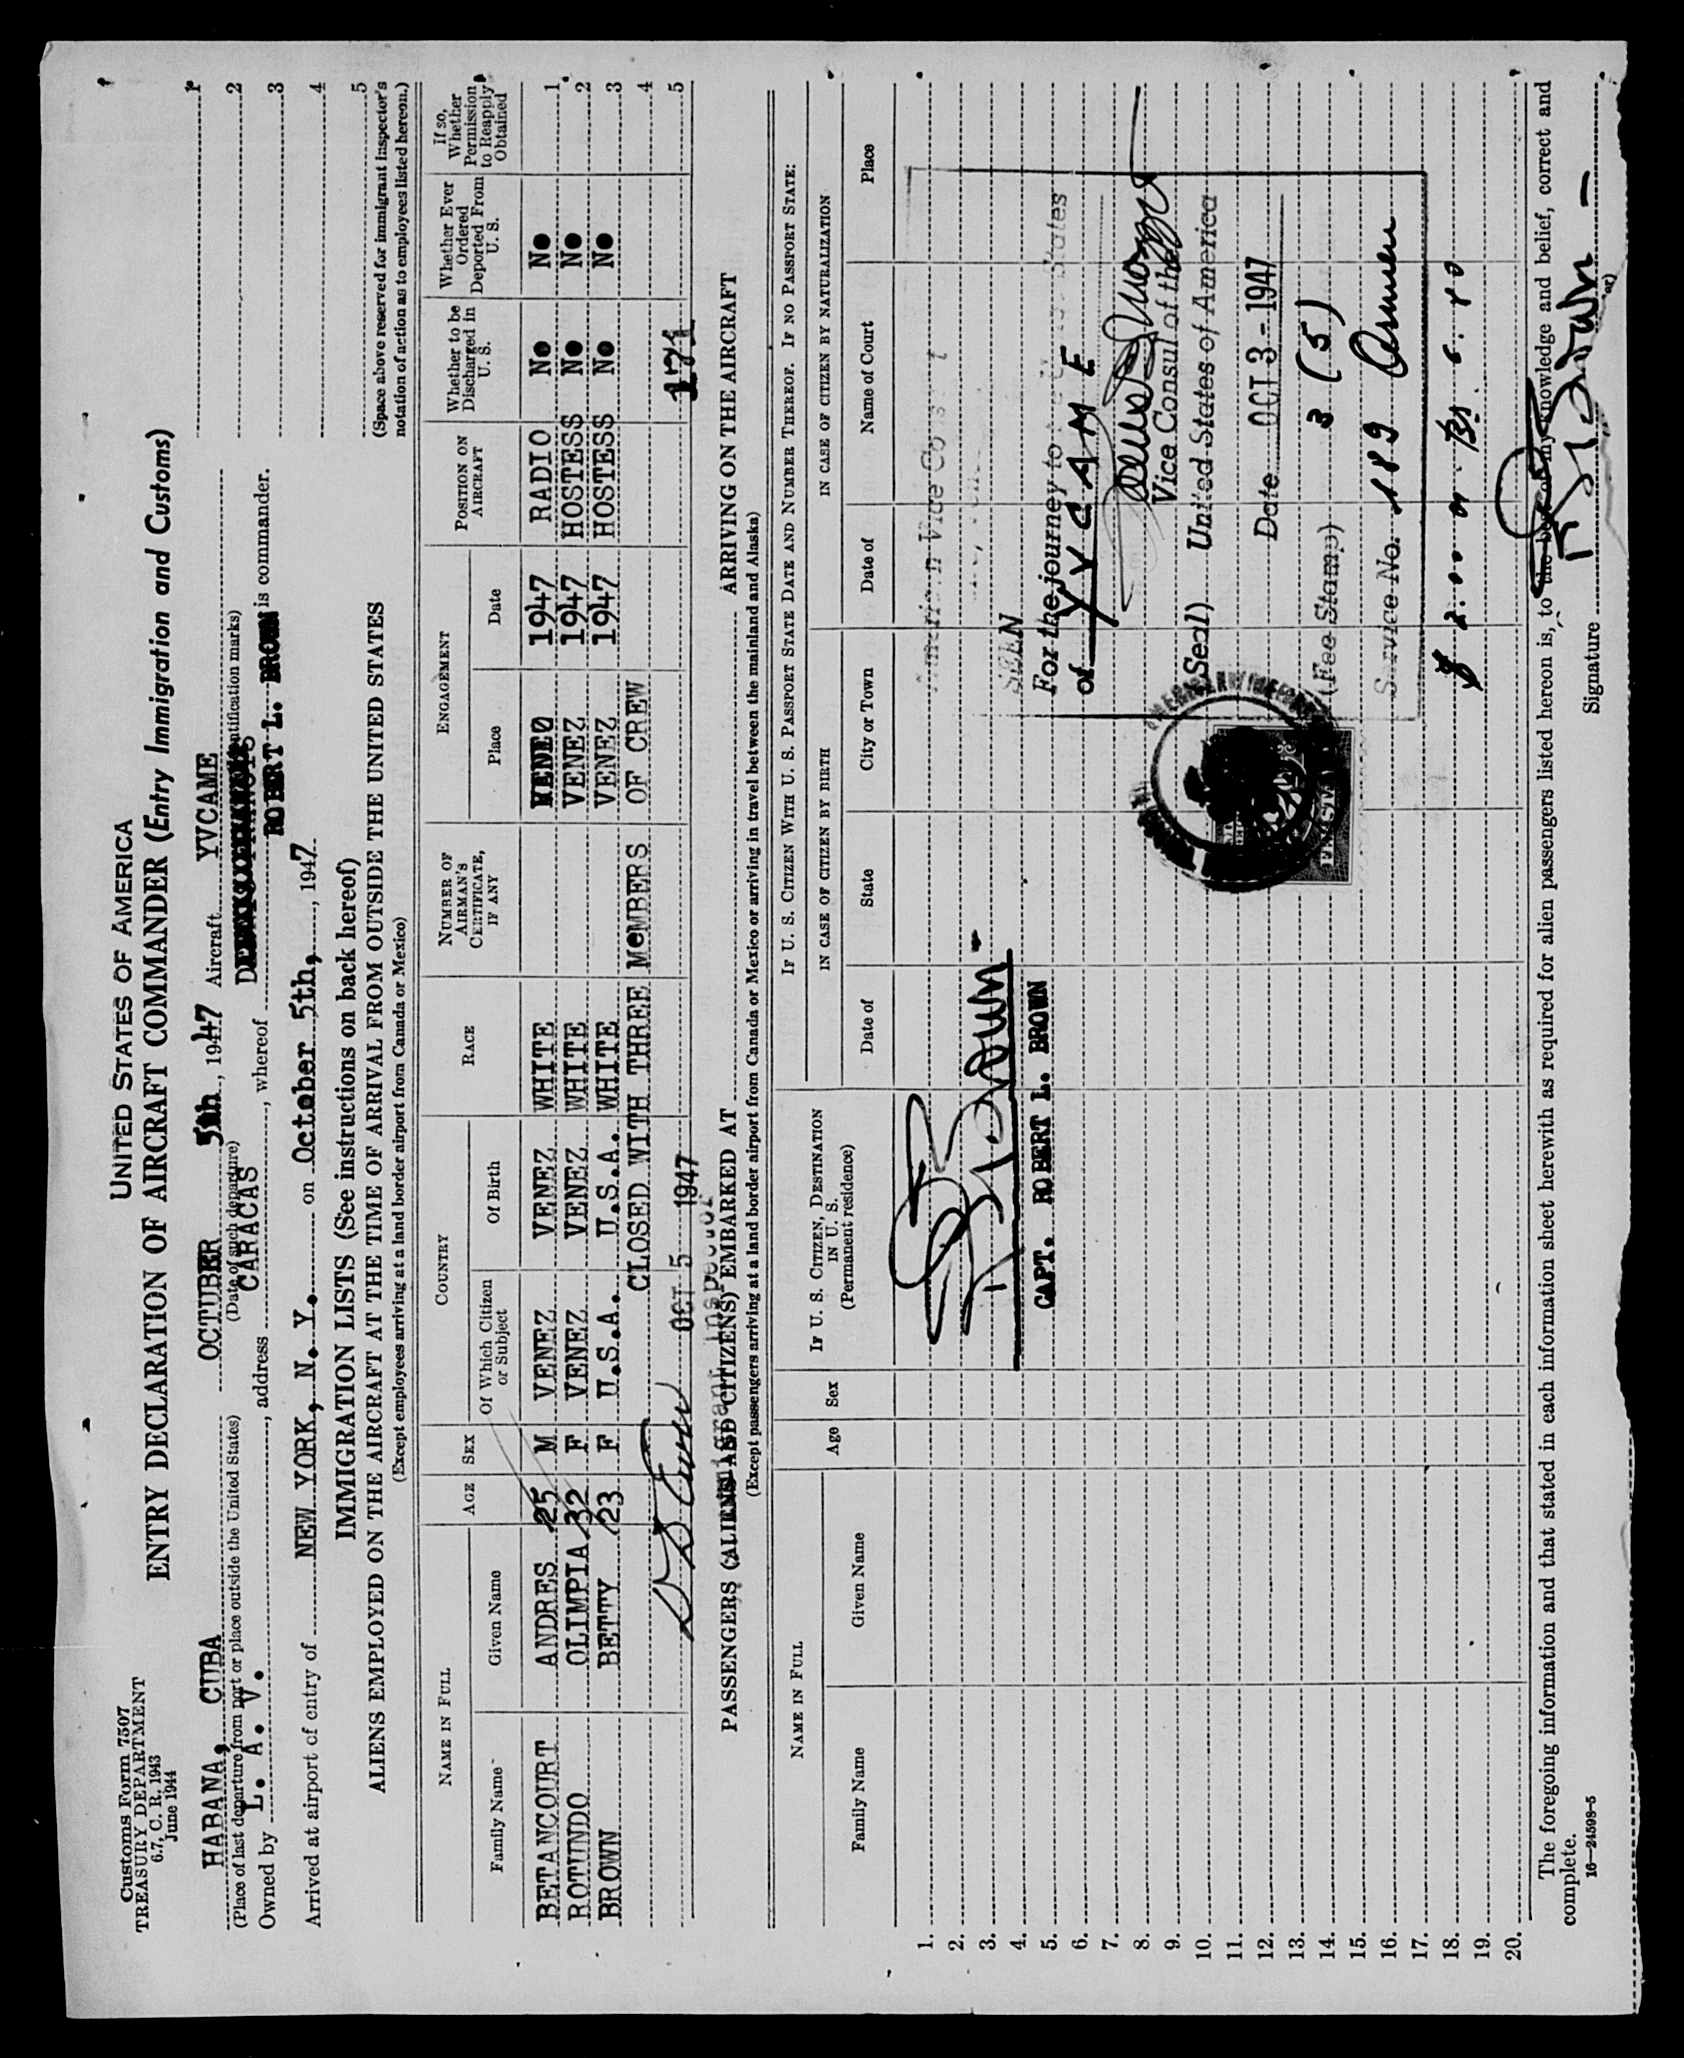 Customs Form 7507
TREASURY DEPARTMENT
6.7, C. R. 1943
June 1944
UNITED STATES OF AMERICA
ENTRY DECLARATION OF AIRCRAFT COMMANDER (Entry Immigration and Customs)
HABANA, CUBA OCTUBER 5th, 1947 Aircraft YVCAME
(Place of last departure from port or place outside the United States) (Date of such departure)
Owned by L. A. V., address CARACAS, whereof ROBERT L. BROWN is commander.
Arrived at airport of entry of NEW YORK, N. Y. on October 5th, 1947
1
2
3
4
5
(Space above reserved for immigrant inspector's
notation of action as to employees listed hereon.)
IMMIGRATION LISTS (See instructions on back hereof)
ALIENS EMPLOYED ON THE AIRCRAFT AT THE TIME OF ARRIVAL FROM OUTSIDE THE UNITED STATES
(Except employees arriving at a land border airport from Canada or Mexico)
NAME IN FULL AGE SEX COUNTRY RACE NUMBER OF AIRMAN'S CERTIFICATE, IF ANY ENGAGEMENT POSITION ON AIRCRAFT Whether to be Discharged in U. S. Whether Ever Ordered Deported From U. S. If so, Whether Permission to Reapply Obtained
Family Name Given Name Of Which Citizen or Subject Of Birth Place Date
BETANCOURT ANDRES 25 M VENEZ VENEZ WHITE 1947 RADIO No No 1
ROTUNDO OLIMPIA 32 F VENEZ VENEZ WHITE VENEZ 1947 HOSTESS No No 2
BROWN BETTY 23 F U.S.A. U.S.A. WHITE VENEZ 1947 HOSTESS No No 3
CLOSED WITH THREE MeMBERS OF CREW 4
OCT 5 1947 171 5
Immigrant Inspector
PASSENGERS (ALIENS AND CITIZENS) EMBARKED AT ARRIVING ON THE AIRCRAFT
(Except passengers arriving at a land border airport from Canada or Mexico or arriving in travel between the mainland and Alaska)
NAME IN FULL Age Sex IF U. S. CITIZEN, DESTINATION IN U. S. (Permanent residence) IF U. S. CITIZEN WITH U. S. PASSPORT STATE DATE AND NUMBER THEREOF. IF NO PASSPORT STATE:
IN CASE OF CITIZEN BY BIRTH IN CASE OF CITIZEN BY NATURALIZATION
Family Name Given Name Date of State City or Town Date of Name of Court Place
1.
2.
3.
4.
5.
6.
7.
8.
9.
10.
11.
12.
13.
14.
15.
16.
17.
18.
19.
20.
R L Brown
CAPT. ROBERT L. BROWN
American Vice Consul
SEEN
For the journey to the United States
of YVCAME
Vice Consul of the
(Seal) United States of America
Date OCT 3 - 1947
(Fee Stamp) 3 (5)
Service No. 189
The foregoing information and that stated in each information sheet herewith as required for alien passengers listed hereon is, to the best of my knowledge and belief, correct and
complete.
16—24598-5
Signature R L Brown